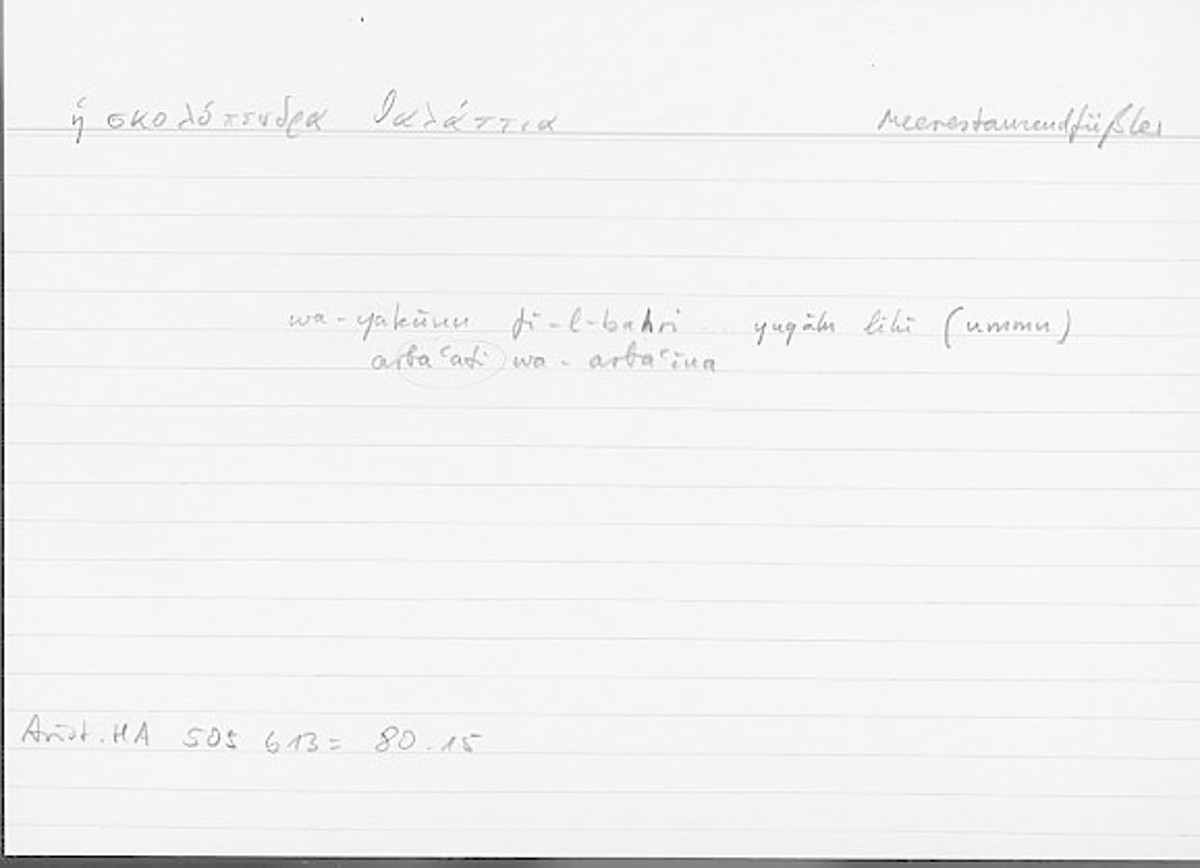 ἡ σκολόπενδρα θαλάττια Meerestausendfüßler
wa-yakūnu fi-l-baḥri ... yuqālu lihī (ummu)
arbaʿati wa-arbaʿīna
Arist. HA 505 b13 = 80.15